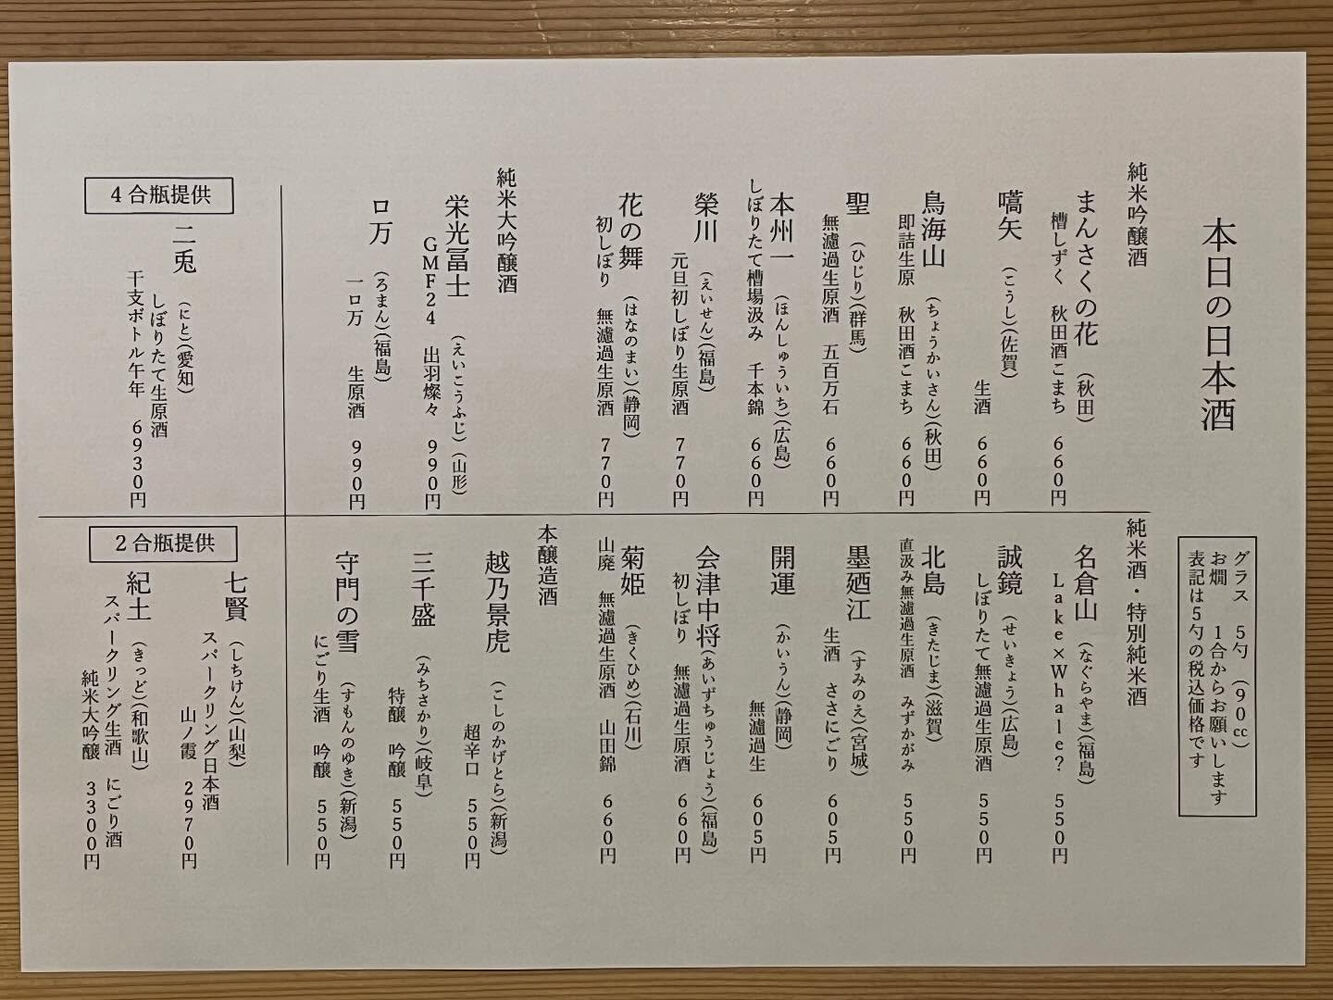 本日の日本酒
グラス 5勺 (90cc)
お燗 1合からお願いします
表記は5勺の税込価格です
純米吟醸酒
まんさくの花 (秋田)
槽しずく 秋田酒こまち 660円
嚆矢 (こうし)(佐賀)
生酒 660円
鳥海山 (ちょうかいさん)(秋田)
即詰生原 秋田酒こまち 660円
聖 (ひじり)(群馬)
無濾過生原酒 五百万石 660円
本州一 (ほんしゅういち)(広島)
しぼりたて槽場汲み 千本錦 660円
榮川 (えいせん)(福島)
元旦初しぼり生原酒 770円
花の舞 (はなのまい)(静岡)
初しぼり 無濾過生原酒 770円
純米大吟醸酒
栄光冨士 (えいこうふじ)(山形)
GMF24 出羽燦々 990円
ロ万 (ろまん)(福島)
一ロ万 生原酒 990円
純米酒・特別純米酒
名倉山 (なぐらやま)(福島)
Lake×Whale? 550円
誠鏡 (せいきょう)(広島)
しぼりたて無濾過生原酒 550円
北島 (きたじま)(滋賀)
直汲み無濾過生原酒 みずかがみ 550円
墨廼江 (すみのえ)(宮城)
生酒 ささにごり 605円
開運 (かいうん)(静岡)
無濾過生 605円
会津中将(あいずちゅうじょう)(福島)
初しぼり 無濾過生原酒 660円
菊姫 (きくひめ)(石川)
山廃 無濾過生原酒 山田錦 660円
本醸造酒
越乃景虎 (こしのかげとら)(新潟)
超辛口 550円
三千盛 (みちさかり)(岐阜)
特醸 吟醸 550円
守門の雪 (すもんのゆき)(新潟)
にごり生酒 吟醸 550円
4合瓶提供
二兎 (にと)(愛知)
しぼりたて生原酒
干支ボトル午年 6930円
2合瓶提供
七賢 (しちけん)(山梨)
スパークリング日本酒
山ノ霞 2970円
紀土 (きっど)(和歌山)
スパークリング生酒 にごり酒
純米大吟醸 3300円